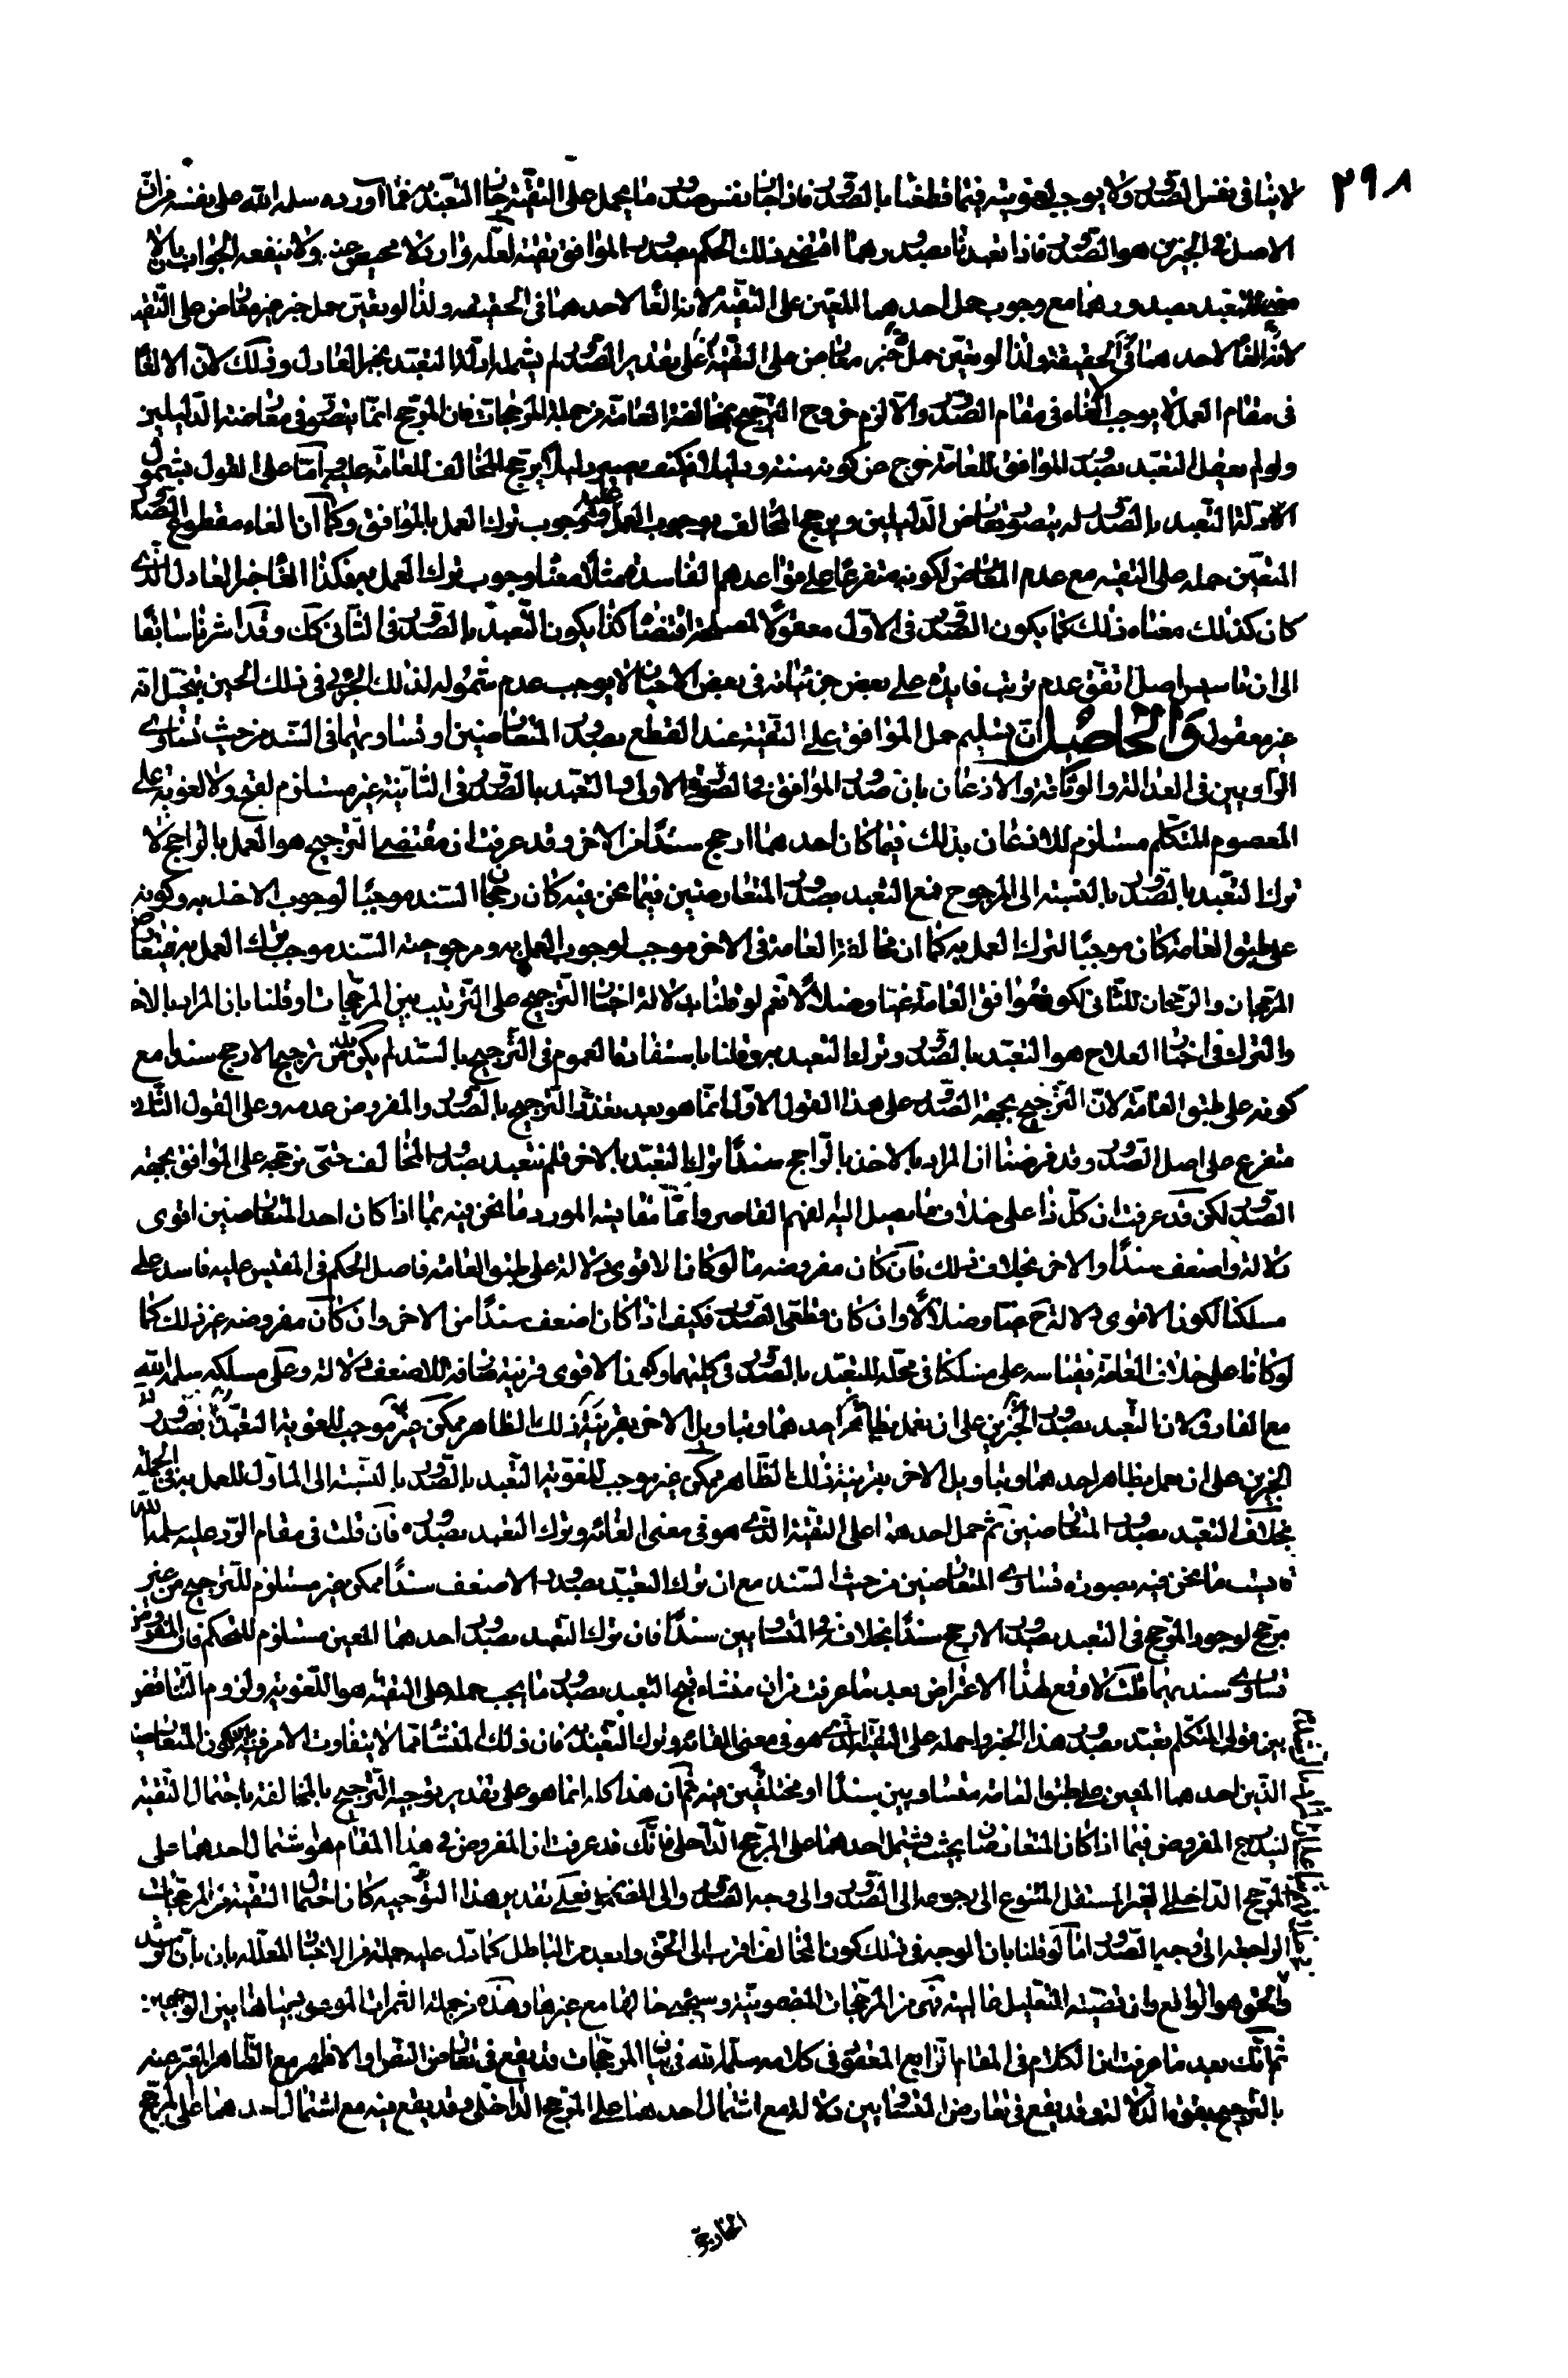 ٢٩٨
لا ينافى نفس الصدور ولا يوجب لغويته فيما قطعنا بالصدور فاذا جاز نفس صدور ما يحمل على التقية جاز التعبد به فما آورده سلمه الله على نفسه من ان
الاصل فى الخبرين هو الصدور فاذا تعبدنا بصدورهما اقتضى ذلك الحكم بصدور الموافق تقية لعله وارد لا محيص عنه ولا ينفعه الجواب بان لا
معنى للتعبد بصدورهما مع وجوب حمل احدهما المعين على التقية لانه الغاء لاحدهما فى الحقيقه ولذا لو تعين حمل خبر غير معارض على التقيه
لانه الغاء لاحدهما فى الحقيقة ولذا لو تعين حمل خبر معارض على التقية على تقدير الصدور لم يشمله ادلة التعبد بخبر العادل وذلك لان الالغاء
فى مقام العمل لا يوجب الغاءه فى مقام الصدور والا لزم خروج الترجيح بمخالفة العامة من جملة المرجحات فان المرجح انما يتصور فى معارضة الدليلين
ولو لم يعقل التعبد بصدور الموافق للعامة خرج عن كونه سنة ودليلا فكيف يصير دليلا يرجح المخالف للعامة عليه امّا على القول بشمول
الادلة التعبد بالصدور له يتصور تعارض الدليلين ويرجح المخالف بوجوب العمل عليه ووجوب ترك العمل بالموافق وكما ان الغاء مقطوع الصدور
المتعين حمله على التقيه مع عدم المعارض لكونه متفرعًا على قواعدهم الفاسدة مثلا معناه وجوب ترك العمل به فكذا الغاء خبر العادل الذى
كان كذلك معناه ذلك كما يكون الصدور فى الاول معقولا لمصلحة اقتضاه كذا يكون التعبد بالصدور فى الثانى كك وقد اشرنا سابقا
الى ان تاسيس اصل اتفق عدم ترتب فايدة على بعض جزئياته فى بعض الاحيان لا يوجب عدم شموله لذلك الجزئى فى ذلك الحين بتخيل انه
غير معقول وَالحاصِل ان تسليم حمل الموافق على التقية عند القطع بصدور المتعارضين او تساويهما فى السند من حيث تساوى
الراويين فى العدالة والوثاقة والاذعان بان صدور الموافق فى الصورة الاولى والتعبد بالصدور فى الثانية غير مستلزم لقبح ولا لغوية على
المعصوم المتكلم مستلزم للاذعان بذلك فيما كان احدهما ارجح سندًا من الاخر وقد عرفت ان مقتضى الترجيح هو العمل بالراجح لا
ترك التعبد بالصدور بالنسبة الى المرجوح فمع التعبد بصدور المتعارضين فيما نحن فيه كان رجحان السند موجبًا لوجوب الاخذ به وكونه
على طبق العامة كان موجبًا لترك العمل به كما ان مخالفة العامة فى الاخر موجب لوجوب العمل به ومرجوحية السند موجب لترك العمل به فيتعارض
المرجحان والرجحان للثانى لكونه موافق العامة غثا وضلالا نعم لو قلنا بدلالة اخبار الترجيح على الترتيب بين المرجحات او قلنا بان المراد بالاخذ
والترك فى اخبار العلاج هو التعبد بالصدور وترك التعبد به وقلنا باستفادة العموم فى الترجيح بالسند لم يكن بد من ترجيح الارجح سندا مع
كونه على طبق العامة لان الترجيح بجهة الصدور على هذا القول الاول انما هو بعد تعذر الترجيح بالصدور والمفروض عدمه وعلى القول الثانى
متفرع على اصل الصدور وقد فرضنا ان المراد بالاخذ بالراجح سندًا ترك التعبد بالاخر فلم نتعبد بصدور المخالف حتى نرجحه على الموافق بجهة
الصدور لكن قد عرفت ان كل ذا على خلاف ما يصل اليه الفهم القاصر وامّا مقايسة المورد ما نحن فيه بما اذا كان احد المتعارضين اقوى
دلالة واضعف سندًا والاخر بخلاف ذلك فان كان مفروضه ما لو كان الاقوى دلالة على طبق العامة فاصل الحكم فى المقيس عليه فاسد على
مسلكنا لكون الاقوى دلالة ح غثا وضلالا وان كان قطعى الصدور فكيف اذا كان اضعف سندًا من الاخر وان كان مفروضه غير ذلك كما
لو كانا على خلاف العامة فقياسه على مسلكنا فى محله للتعبد بالصدور فى كليهما وكون الاقوى قرينة صارفة للاضعف دلالة وعلى مسلكه سلمه الله
مع الفارق لان التعبد بصدور الخبرين على ان نعمل بظاهر احدهما وبتاويل الاخر بقرينة ذلك الظاهر ممكن غير موجب للغوية التعبد بصدور
الخبرين على ان نعمل بظاهر احدهما وبتاويل الاخر بقرينة ذلك الظاهر ممكن غير موجب للغوية التعبد بالصدور بالنسبة الى الماول للعمل به فى الجملة
بخلاف التعبد بصدور المتعارضين ثم حمل احدهما على التقية الذى هو فى معنى الغائه وترك التعبد بصدوره فان قلت فى مقام الرد عليه سلمه الله
قايست ما نحن فيه بصورة تساوى المتعارضين من حيث السند مع ان ترك التعبد بصدور الاضعف سندًا ممكن غير مستلزم للترجيح من غير
مرجح لوجود المرجح فى التعبد بصدور الارجح سندًا بخلافه فى المتساويين سندًا فان ترك التعبد بصدور احدهما المعين مستلزم للتحكم فان المفروض
تساوى سنديهما قلت لا وقع لهذا الاعتراض بعد ما عرفت من ان منشاء قبح التعبد بصدور ما يجب حمله على التقية هو اللغوية ولزوم التناقض
بين قولى المتكلم تعبد بصدور هذا الخبر واحمله على التقية الذى هو فى معنى الغائه وترك التعبد به فان ذلك المنشأ مما لا يتفاوت الامر فيه بكون المتعارضين
الذين احدهما المعين على طبق العامة متساويين سندًا او مختلفين فيه ثم ان هذا كله انما هو على تقدير توجيه الترجيح بالمخالفة باحتمال التقية
ليندرج المفروض فيما اذا كان المتعارضان بحيث يشتمل احدهما على المرجح الداخلى فانك قد عرفت ان المفروض فى هذا المقام هو اشتمال احدهما على
المرجح الداخلى الغير المستقل المتنوع الى رجوعه الى الصدور والى وجه الصدور والى المضمون فعلى تقدير هذا التوجيه كان احتمال التقية من المرجحات
الراجعة الى وجه الصدور امّا لو قلنا بان الوجه فى ذلك كون المخالف اقرب الى الحق وابعد من الباطل كما تدل عليه جملة من الاخبار المعللة بان
والحق هو الواقع وان قضية التعليل فهى من المرجحات المضمونية وسيجىء حالها مع غيرها وهذه من جملة الثمرات الموعود بيانها بين الوجهين
ثم انك بعد ما عرفت ان الكلام فى المقام الرابع المعقود فى كلامه سلمه الله فى بيان المرجحات قد يقع فى تعارض النص او الاظهر مع الظاهر المعبر عنه
بالترجيح بقوة الدلالة وقد يقع فى تعارض المتساويين دلالة مع اشتمال احدهما على المرجح الداخلى وقد يقع فيه مع اشتمال احدهما على المرجح
الخارجى